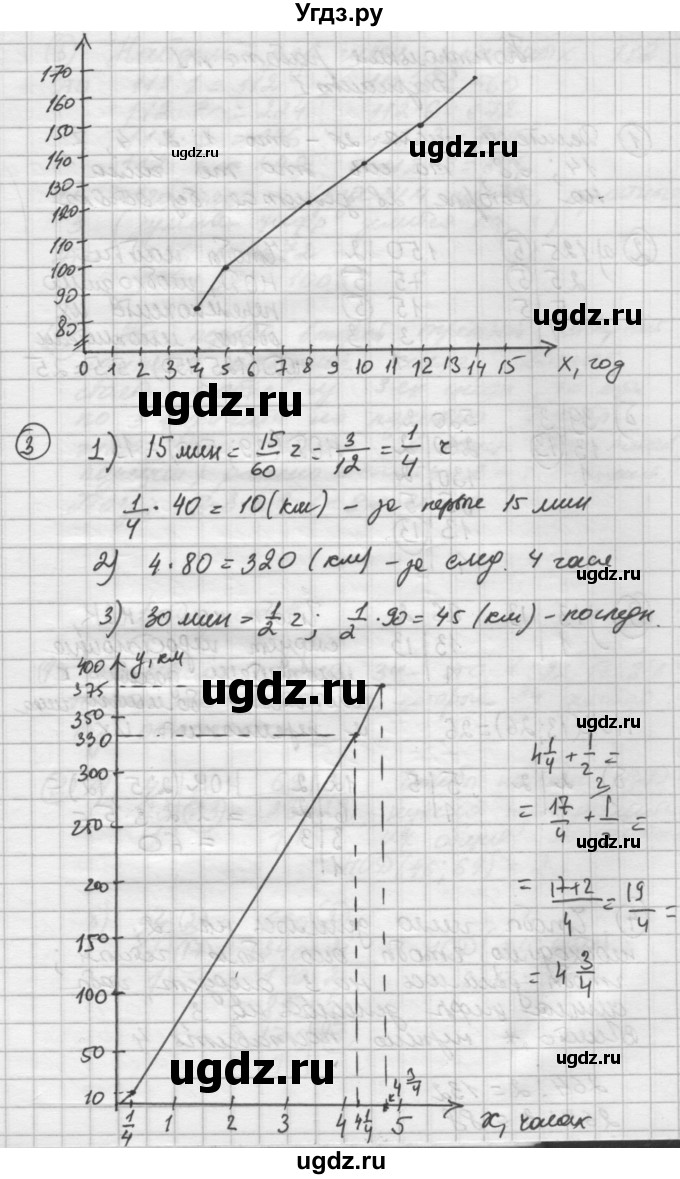 Угдз.ру
170
160
150
140
130
120
110
100
90
80
0 1 2 3 4 5 6 7 8 9 10 11 12 13 14 15 х, год
ugdz.ru
ugdz.ru
ugdz.ru
ugdz.ru
ugdz.ru
③ 1) 15 мин = 15/60 ч = 3/12 = 1/4 ч
ugdz.ru
1/4 · 40 = 10 (км) – за первые 15 мин
2) 4 · 80 = 320 (км) – за след. 4 часа
ugdz.ru
3) 30 мин = 1/2 ч; 1/2 · 90 = 45 (км) – последн.
400 у, км
375
350
330
300
250
200
150
100
50
10
1/4 1 2 3 4 4 1/4 4 3/4 5 х, часах
ugdz.ru
ugdz.ru
4 1/4 + 1/2 =
= 17/4 + 1/2 =
ugdz.ru
= 17+2/4 = 19/4 =
= 4 3/4
ugdz.ru
ugdz.ru
ugdz.ru
ugdz.ru